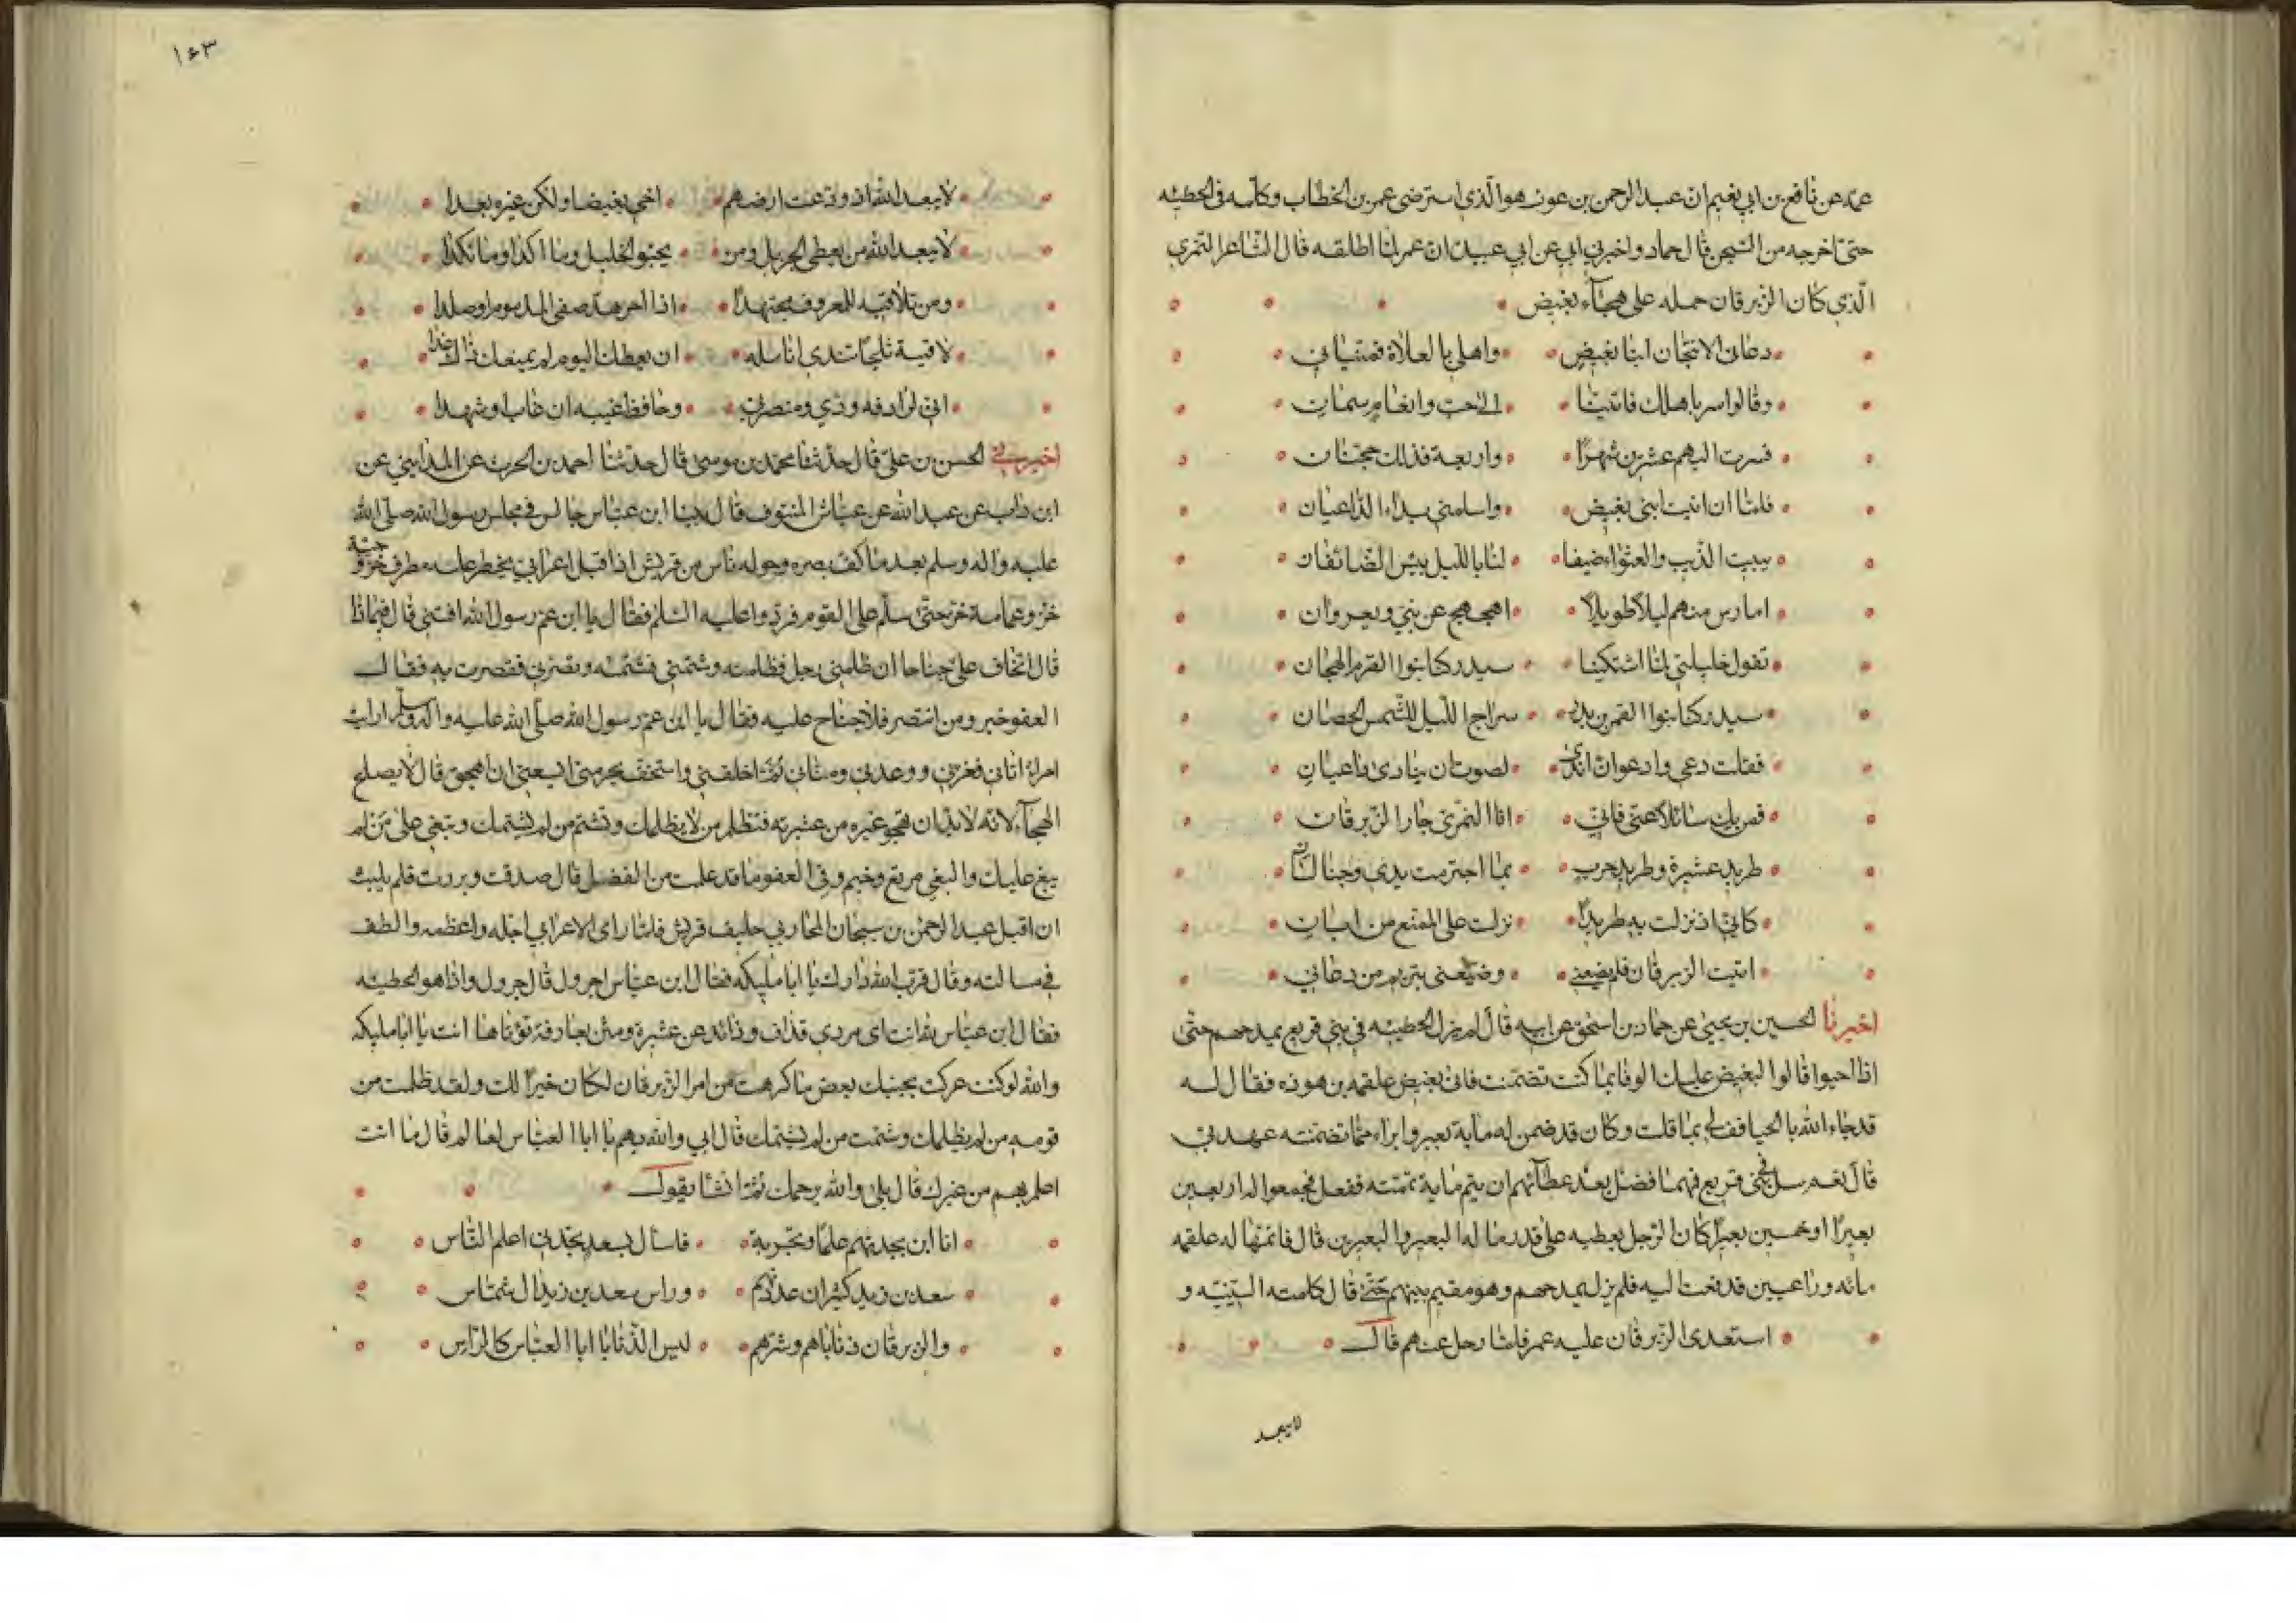 عمه عن نافع بن ابي نعيم ان عبد الرحمن بن عوف هو الذي استرضى عمر بن الخطاب وكلمه في الحطيئه
حتى اخرجه من السجن قال حماد واخبرني ابي عن ابي عبيدة ان عمر لما اطلقه قال الشاعر النمري
الذي كان الزبرقان حمله على هجاء بغيض
دعاني الاثبجان ابنا بغيض واهلي بالعلاة فمنياني
وقالوا سر باهلك فاتينا الى حب وانعام سمان
فسرت اليهم عشرين شهرا واربعة فذلك حجتان
فلما ان اتيت ابني بغيض واسلمني بدائي الداعيان
يبيت الذيب والعثواء ضيفا لنا بالليل بيس الضائفان
امارس منهم ليلا طويلا اهجهج عن بني ويعروان
تقول خليلتي لما اشتكينا سيدركنا بنوا القرم الهجان
سيدركنا بنوا القمر بن بدر سراج الليل للشمس الحصان
فقلت ادعي وادعو ان اندى لصوت ان ينادى داعيان
فمن يك سائلا عني فاني انا النمري جار الزبرقان
طريد عشيرة وطريد حرب بما اجترمت يدي وجنا لساني
كاني اذ نزلت به طريدا نزلت على الممنع من ابان
اتيت الزبرقان فلم يضعني وضيعني بتريم من دعاني
اخبرنا الحسين بن يحيى عن حماد بن اسحق عن ابيه قال لم يزل الحطيئه في بني قريع يمدحهم حتى
اذا احيوا قالوا لبغيض عليك الوفا بما كنت تضمنت فاتى بغيض علقمه بن هوذه فقال له
قد جاء الله بالحيا فف لي بما قلت وكان قد ضمن له ماية بعير وابراء مما تضمنته عهدتي
قال نعم سل في بني قريع فهما فضل بعد عطائهم ان يتم ماية تممته ففعل فجمعوا له اربعين
بعيرا او خمسين بعيرا كان الرجل يعطيه على قدر ماله البعير والبعيرين قال فاتمها له علقمه
مائه وراعيين فدفعت اليه فلم يزل يمدحهم وهو مقيم بينهم حتى قال كلمته السينيه و
استعدى الزبرقان عليه عمر فلما رحل عنهم قال
لا يبعد
١٤٣
لا يبعد الله اذ ودعت ارضهم اخي بغيضا ولكن غيره بعدا
لا يبعد الله من يعطي الجزيل ومن يحبو الخليل وما اكدا وما نكدا
ومن تلاقيه للمعروف مجتهدا اذا اجرهد صفى المذموم او صلدا
لاقيته ثلجا تندى انامله ان يعطك اليوم لم يمنعك ذاك غدا
اني لرادفه ودي ومنصرتي وحافظ غيبه ان غاب او شهدا
اخبرني الحسن بن علي قال حدثنا محمد بن موسى قال حدثنا احمد بن الحرث عن المدايني عن
ابن داب عن عبد الله عن عياش المنتوف قال بينا ابن عباس جالس في مجلس رسول الله صلى الله
عليه واله وسلم بعد ما كف بصره وحوله ناس من قريش اذ اقبل اعرابي يخطر عليه مطرف خز وجبة
خز وعمامة خز حتى سلم على القوم فردوا عليه السلام فقال يا ابن عم رسول الله افتني قال فيما ذا
قال اتخاف علي جناحا ان ظلمني رجل فظلمته وشتمني فشتمته وقصر بي فقصرت به فقال
العفو خير ومن انتصر فلا جناح عليه فقال يا ابن عم رسول الله صلى الله عليه واله وسلم ارايت
امرأ اتاني فغرني ووعدني ومناني ثم اخلفني واستخف بحرمتي ايسعني ان اهجوه قال لا يصلح
الهجاء لانه لا بد ان تهجو غيره من عشيرته فتظلم من لا يظلمك وتشتم من لم يشتمك وتبغي على من لم
يبغ عليك والبغي مرتع وخيم وفي العفو ما قد علمت من الفضل قال صدقت وبررت فلم يلبث
ان اقبل عبد الرحمن بن سيحان المحاربي حليف قريش فلما راى الاعرابي اجله واعظمه والطف
في مسالته وقال قرب الله دارك يا ابا مليكه فقال ابن عباس اجرول قال جرول واذا هو الحطيئه
فقال ابن عباس لله انت اى مردي قذاف وذائد عن عشيرة ومثن بعارفة تؤتاها انت يا ابا مليكه
والله لو كنت عركت بجنبك بعض ما كرهت من امر الزبرقان لكان خيرا لك ولقد ظلمت من
قومه من لم يظلمك وشتمت من لم يشتمك قال اني والله بهم يا ابا العباس لعالم قال ما انت
اعلم بهم من غيرك قال بلى والله يرحمك ثم انشا يقول
انا ابن بجدتهم علما وتجربة فاسال بسعد تجدني اعلم الناس
سعد بن زيد كثير ان عددتهم وراس سعد بن زيد ال شماس
والزبرقان ذناباهم وشرهم ليس الذنابا ابا العباس كالراس